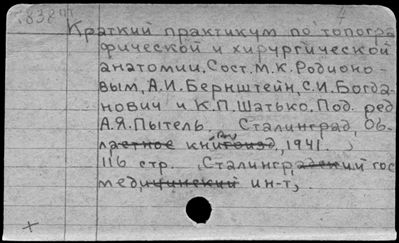 7838
Краткий практикум по топогра
фической и хирургической
анатомии. Сост. М.К. Родионо-
вым, А.И. Бернштейн, С.И. Богда-
нович и К.П. Шатько. Под. ред
А.Я. Пытель. Сталинград, Об-
ластное книгоизд., 1941.
116 стр. Сталинградский гос
медицинский ин-т,